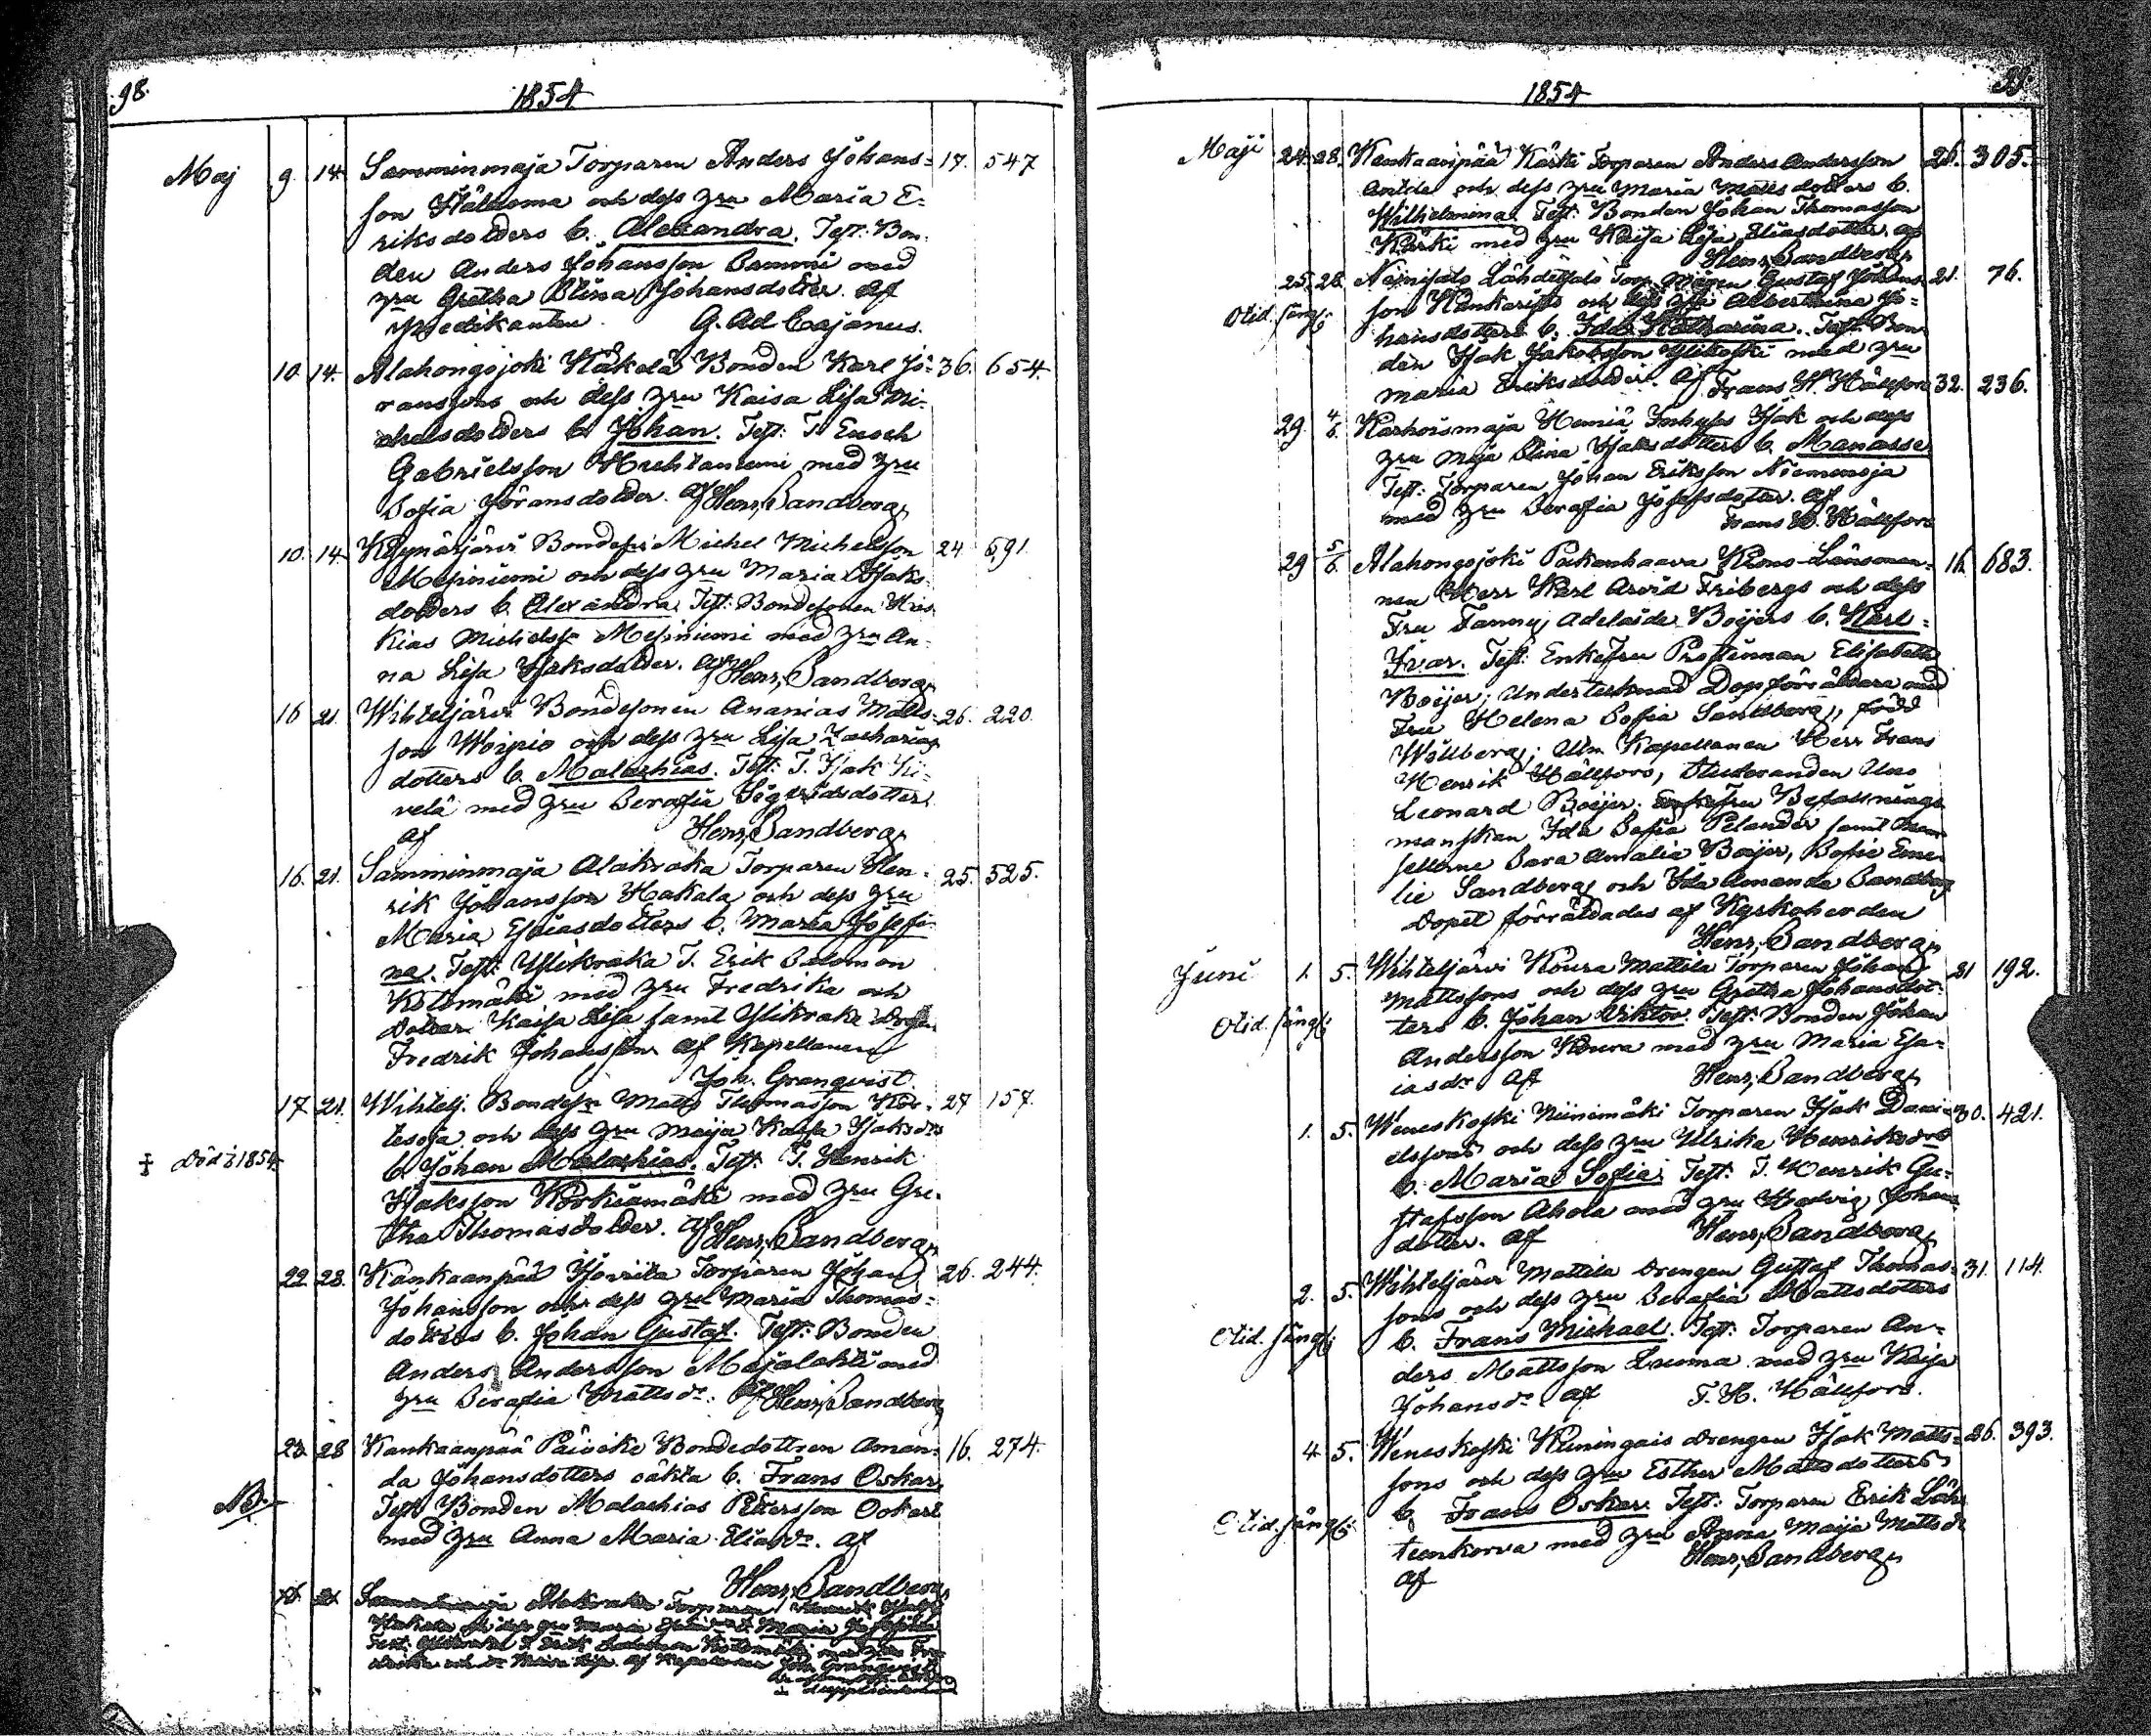 98.
1854
Maj 9. 14. Samminmaja Torparen Anders Johans= 17. 547
son och dess hru Maria E=
riksdotters b. Alexandra. Test: Bon=
den Anders Johansson Sammi med
hru Gretha Stina Johansdotter. af
Predikanten G. Ad Cajanus.
10. 14. Alahongojoki Kåkelä Bonden Karl Jö= 36. 654.
ranssons och dess hru Kaisa Lisa Mi=
chelsdotters b. Johan. Test: T. Enoch
Gabrielsson Huhtaniemi med hru
Sofia Jöransdotter. af Henr, Sandberg,
10. 14. Kyynärjärvi Bondes: Michel Michelsson 24. 591.
Mesiniemi och dess hru Maria Isaks=
dotters b. Alexandra. Test: Bondesonen His=
kias Michelss: Mesiniemi med hru An=
na Lisa Isaksdotter. af Henr, Sandberg,
16 21. Wihteljärvi Bondesonen Ananias Matts= 26. 220.
son Woipio och dess hru Lisa Zacharias
dotters b. Malachias. Test: T. Isak
velä med hru Serafia Sigfridsdotter
af Henr, Sandberg,
16. 21. Samminmaja Alakraka Torparen Hen= 25. 525.
rik Johansson Hakala och dess hru
Maria Esaiasdotters b. Maria Josefi=
na. Test: Ylikraka T. Erik Salomon
Kolomäki med hru Fredrika och
dotter Kaisa Lisa samt Ylikraka Dreng
Fredrik Johansson af Kapellanen
Joh. Granqvist.
17 21. Wihtelj. Bondesn Matts Thomasson Kor= 27 157.
tesoja och dess hru Maija Kaisa Isaksdrs
‡ död i 1854 b. Johan Malachias. Test: T. Henrik
Isaksson Korkiamäki med hru Gre=
tha Thomasdotter. af Henr, Sandberg,
22. 28. Kankaanpää Torparen Johan 26. 244.
Johansson och dess hru Maria Thomas=
dotters b. Johan Gustaf. Test: Bonden
Anders Andersson Majalahti med
hru Serafia Mattsdr. af Henr, Sandberg
23. 28 Kankaanpää Päivike Bondedottren Aman= 16. 274.
da Johansdotters oäkta b. Frans Oskar,
NB. Test: Bonden Malachias Pettersson Ockari
med hru Anna Maria Eliasdr. af
Henr, Sandberg,
Samminmaja Alakraka Torparen Henrik
Hakala och dess hru Maria b. Maria Josefina
Test: Ylikraka T. Erik Salomon Kolomäki med hru Fre=
drika och dr Kaisa Lisa. af Kapellanen Joh. Granqvist
99.
1854
Maji 24. 28. Kankaanpää Kärki Torparen Anders Andersson 26. 305.
Anttila och dess hru Maria Mattsdotters b.
Wilhelmina. Test: Bonden Johan Thomasson
Kärki med hru Kaisa Lisa Eliasdotter. af
Henr, Sandberg,
25. 28. Niinisalo Lähdeisalo Torp. Gustaf Johans= 21. 76.
Otid. sängf: son Kankaristo och dess hru Albertina Jo=
hansdotters b. Ida Katharina. Test: Bon=
den Isak Jakobsson Ylikoski med hru
Maria Eriksdotter. af Frans H. Hällfors
29. 4/6 Karhoismaja Hemiä Inhyses Isak och dess 32. 236.
hru Maja Stina Isaksdotters b. Manasse
Test: Torparen Johan Eriksson Niemenoja
med hru Serafia Josefsdotter. af
Frans H. Hällfors
29 5/6 Alahongojoki Paikanhaara Krono-Länsman= 16. 683.
nen Herr Karl Arvid Fribergs och dess
Fru Fanny Adelaide Boijers b. Karl=
Ivar. Test: Enkefru Prostinnan Elisabeth
Boijer; Undertecknad Dopförrättare med
Fru Helena Sofia Sandberg, född
Willberg; Adm Kapellanen Herr Frans
Henrik Hällfors, Studeranden Uno
Leonard Boijer. Enkefru Befallnings=
manskan Ida Sofia Pelander samt Mam=
sellerne Sara Amalia Boijer, Sofie Eme=
lie Sandberg och Ida Amanda Sandberg
Dopet förrättades af Kyrkoherden
Henr, Sandberg,
Juni 1. 5. Wihteljärvi Koura Mattila Torparen Johan 21 192.
Mattssons och dess hru Gretha Johansdot=
Otid. sängf: ters b. Johan Viktor. Test: Bonden Johan
Andersson Koura med hru Maria Esa=
iasdr af Henr, Sandberg,
1. 5. Weneskoski Niinimäki Torparen Isak Dani= 30. 421.
elssons och dess hru Ulrika Henriksdrs
b. Maria Sofia. Test: T. Henrik Gu=
stafsson Ahola med hru Hedvig Johans
dotter. af Henr, Sandberg,
2. 5. Wihteljärvi Mattila Drengen Gustaf Thomas= 31. 114.
sons och dess hru Serafia Mattsdotters
Otid. sängf: b. Frans Michael. Test: Torparen An=
ders Mattsson Luoma med hru Kaisa
Johansdr af F. H. Hällfors.
4. 5. Weneskoski Kuningais Drengen Isak Matts= 26. 393.
sons och dess hru Esther Mattsdotters
Otid. sängf: b. Frans Oskar. Test: Torparen Erik Läh=
teenkorva med hru Anna Maija Mattsdr
af Henr, Sandberg,